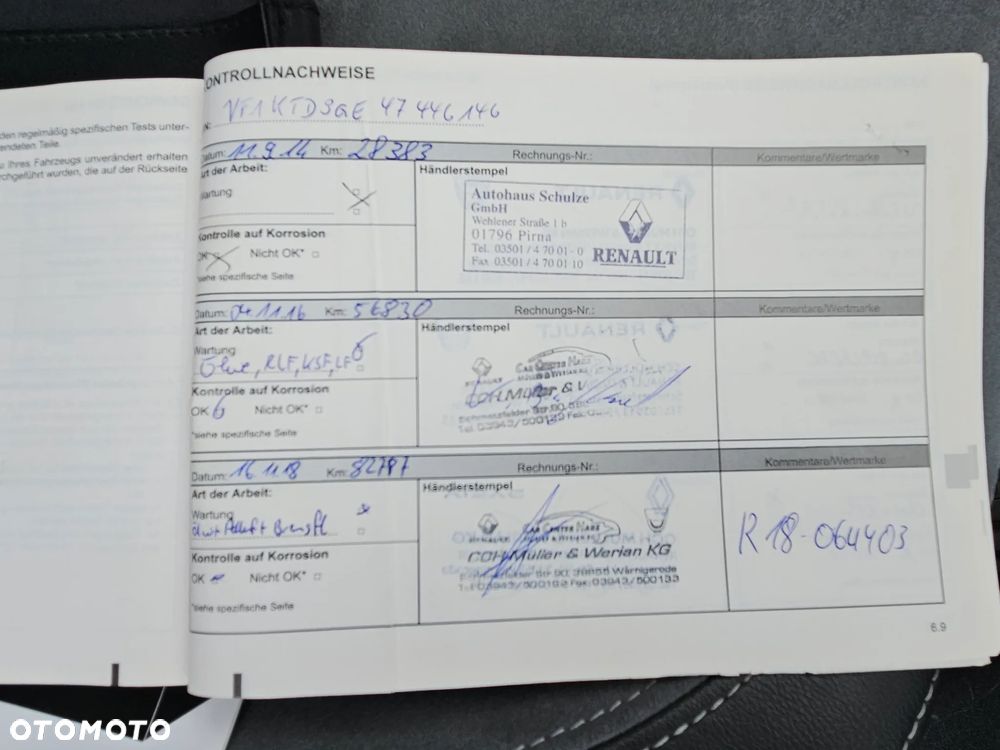 den regelmäßig spezifischen Tests unter-
endeten Teile.
Ihres Fahrzeugs unverändert erhalten
chgeführt wurden, die auf der Rückseite
ONTROLLNACHWEISE
VF1KTDSGE 47446146
Datum: 11.9.14 Km: 28383 Rechnungs-Nr.: Kommentare/Wertmarke
Art der Arbeit: Händlerstempel
Wartung
Autohaus Schulze
GmbH
Wehlener Straße 1 b
01796 Pirna
Tel. 03501 / 4 70 01 - 0
Fax 03501 / 4 70 01 10
RENAULT
Kontrolle auf Korrosion
OK Nicht OK*
*siehe spezifische Seite
Datum: 04.11.16 Km: 56830 Rechnungs-Nr.: Kommentare/Wertmarke
Art der Arbeit: Händlerstempel
Wartung
RLF, KSF, LF
CAR CENTER HARZ
RENAULT
COH.Müller &
Kontrolle auf Korrosion
OK Nicht OK*
*siehe spezifische Seite
Datum: 16.11.18 Km: 82797 Rechnungs-Nr.: Kommentare/Wertmarke
Art der Arbeit: Händlerstempel
Wartung
CAR CENTER HARZ
RENAULT
COH.Müller & Werian KG
Str 90, 38855 Wernigerode
Tel.03943/500192 Fax:03943/500133
R 18-064403
Kontrolle auf Korrosion
OK Nicht OK*
*siehe spezifische Seite
6.9
OTOMOTO